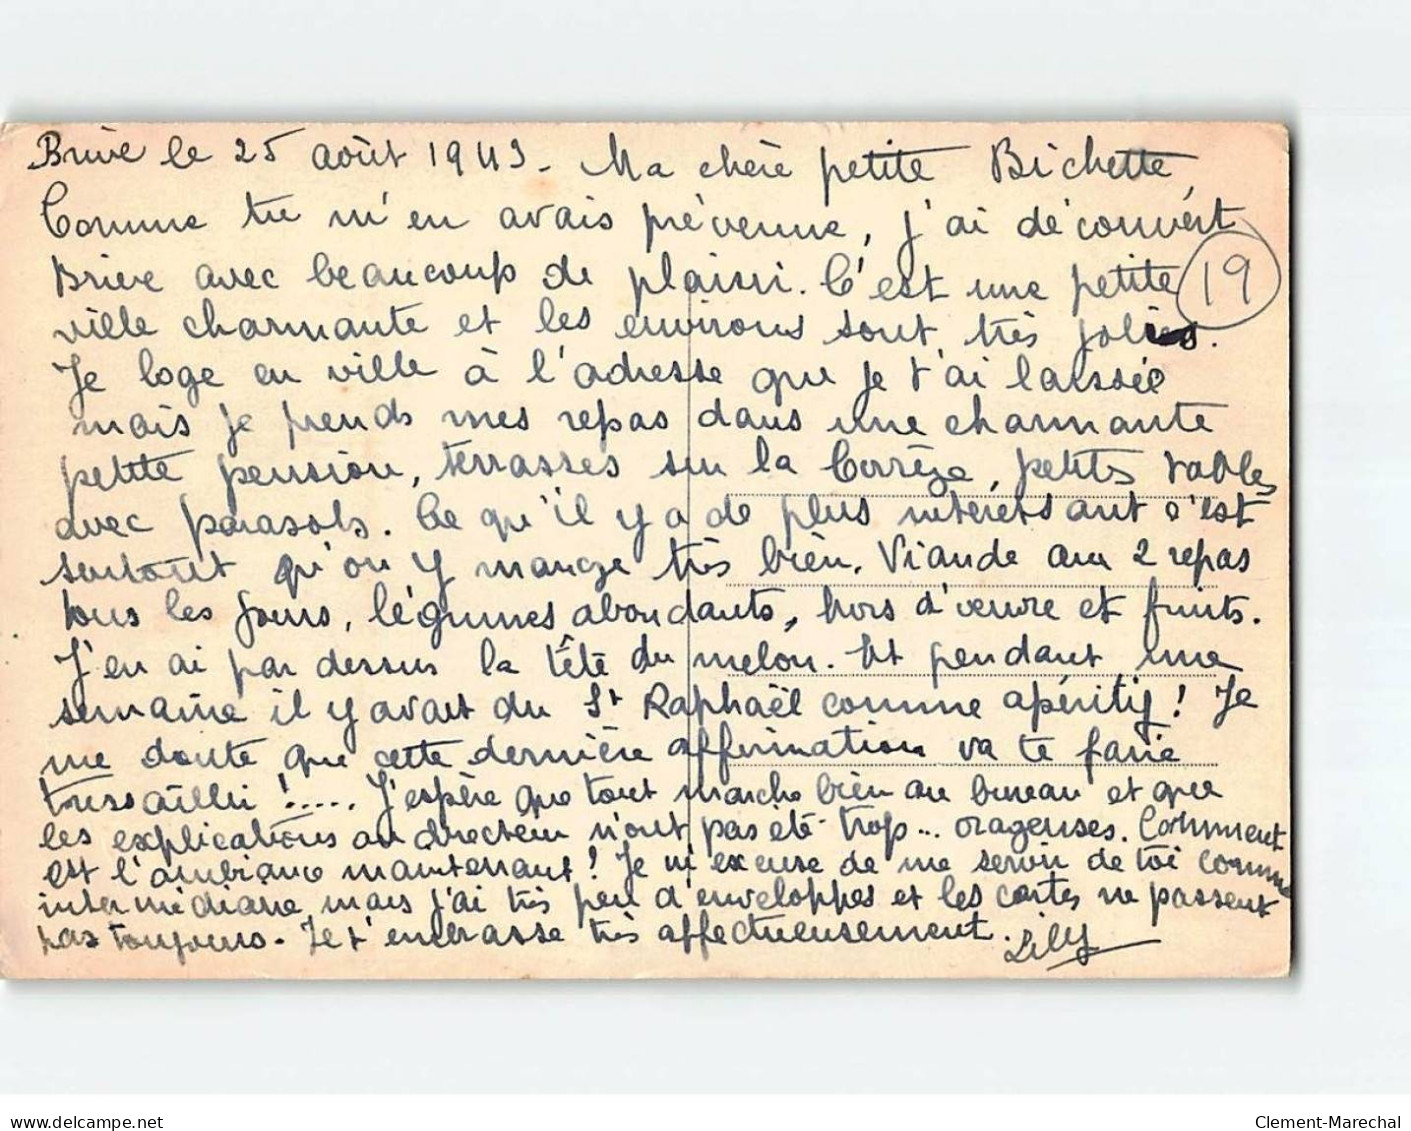 Brive le 25 août 1943. Ma chère petite Bichette,
Comme tu m'en avais prévenue, j'ai découvert
Brive avec beaucoup de plaisir. C'est une petite
19
ville charmante et les environs sont très jolies.
Je loge en ville à l'adresse que je t'ai laissée
mais je prends mes repas dans une charmante
petite pension, terrasses sur la Corrèze, petits tables
avec parasols. Ce qu'il y a de plus intéressant c'est
surtout qu'on y mange très bien. Viande aux 2 repas
tous les jours, légumes abondants, hors d'œuvre et fruits.
J'en ai par dessus la tête du melon. Et pendant une
semaine il y avait du St Raphaël comme apéritif ! Je
me doute que cette dernière affirmation va te faire
tressaillir !..... J'espère que tout marche bien au bureau et que
les explications au directeur n'ont pas été trop... orageuses. Comment
est l'ambiance maintenant ! Je m'excuse de me servir de toi comme
intermédiaire mais j'ai très peu d'enveloppes et les cartes ne passent
pas toujours. Je t'embrasse très affectueusement.
Lily
delcampe.net
Clement-Marechal